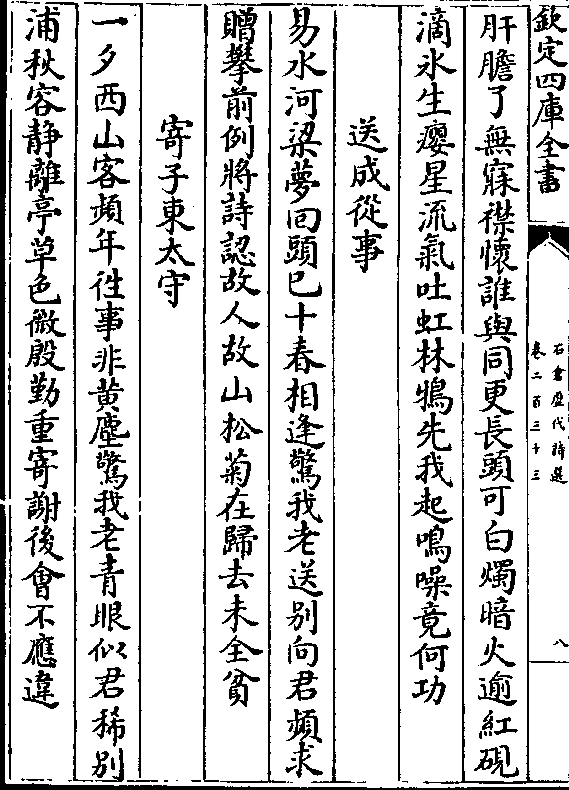 欽定四庫全書
石倉歷代詩選
卷二百三十三
八
肝膽了無寐襟懷誰與同更長頭可白燭暗火逾紅硯
滴氷生癭星流氣吐虹林鴉先我起鳴噪竟何功
送成從事
易水河梁夢回頭已十春相逢驚我老送别向君頻求
贈攀前例將詩認故人故山松菊在歸去未全貧
寄子東太守
一夕西山客頻年徃事非黄塵驚我老青眼似君稀别
浦秋容静離亭草色微殷勤重寄謝後會不應違